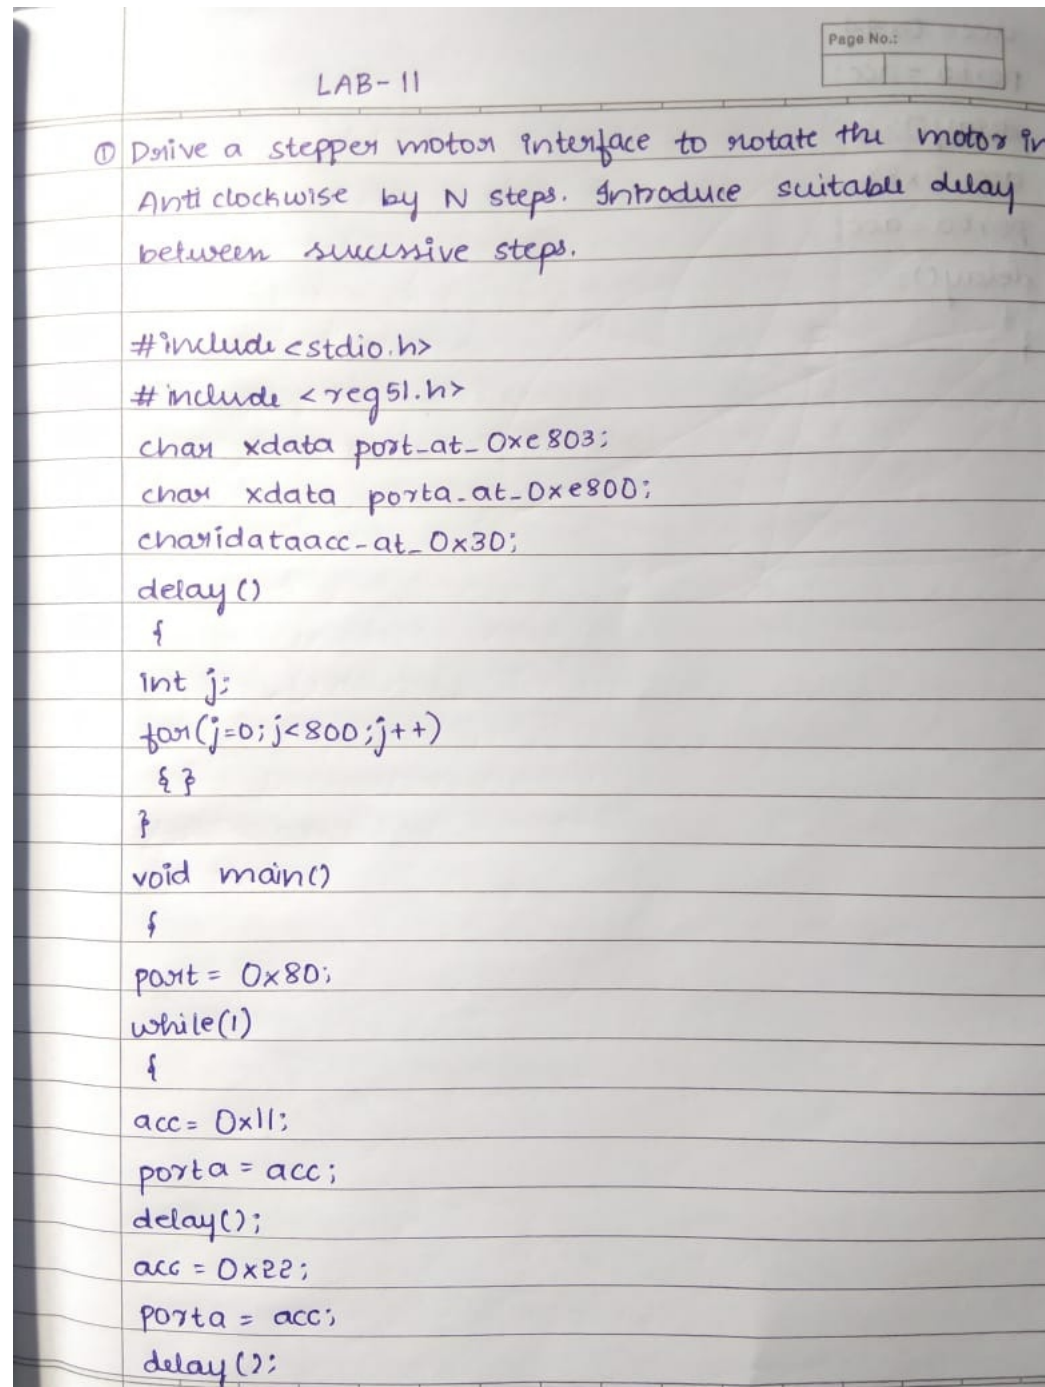 Page No.:
LAB-11
① Drive a stepper motor interface to rotate the motor in
Anti clockwise by N steps. Introduce suitable delay
between sucessive steps.
#include <stdio.h>
# include <reg51.h>
char xdata port_at_0xe803;
char xdata porta_at_0xe800;
charidataacc_at_0x30;
delay()
{
int j;
for(j=0;j<800;j++)
{ }
}
void main()
{
port = 0x80;
while(1)
{
acc = 0x11;
porta = acc;
delay();
acc = 0x22;
porta = acc;
delay();